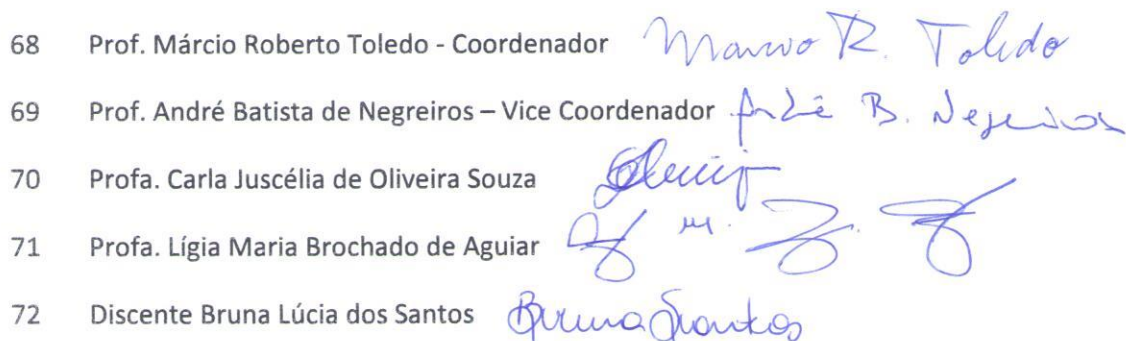 68 Prof. Márcio Roberto Toledo - Coordenador Marcio R. Toledo
69 Prof. André Batista de Negreiros – Vice Coordenador André B. Negreiros
70 Profa. Carla Juscélia de Oliveira Souza
71 Profa. Lígia Maria Brochado de Aguiar
72 Discente Bruna Lúcia dos Santos Bruna Santos